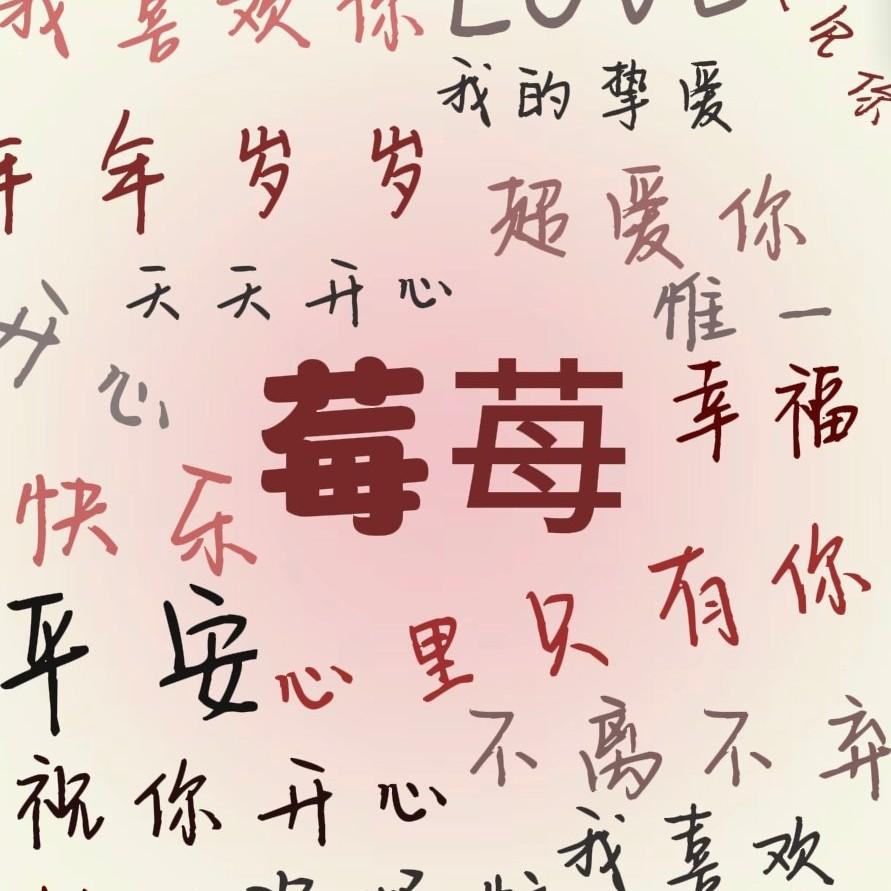 我喜欢你
LOVE
我的挚爱
年年岁岁
超爱你
天天开心
惟一
心
莓苺
幸福
快乐
有你
平安
心里只
不离不弃
祝你开心
我喜欢